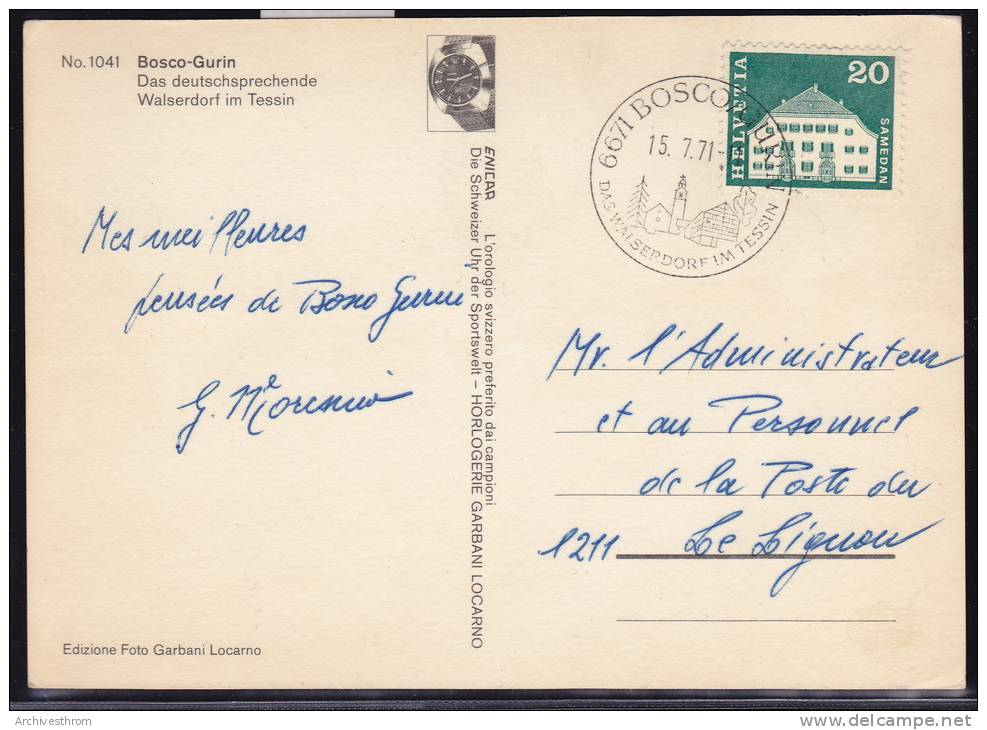 No. 1041 Bosco-Gurin
Das deutschsprechende
Walserdorf im Tessin
Mes meilleures
pensées de Bosco Gurin
G.
Edizione Foto Garbani Locarno
ENICAR L'orologio svizzero preferito dai campioni
Die Schweizer Uhr der Sportswelt – HORLOGERIE GARBANI LOCARNO
6671 BOSCO/GURIN
15. 7.71
DAS WALSERDORF IM TESSIN
HELVETIA
20
SAMEDAN
Mr. l'Administrateur
et au Personnel
de la Poste du
1211 Le Lignon
Archivesthrom
www.delcampe.net